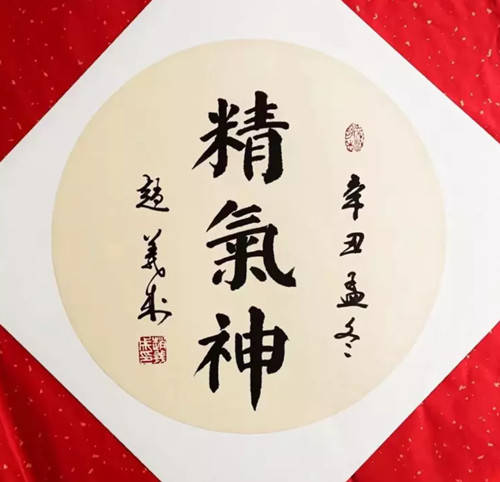 辛丑孟冬
精氣神
趙義